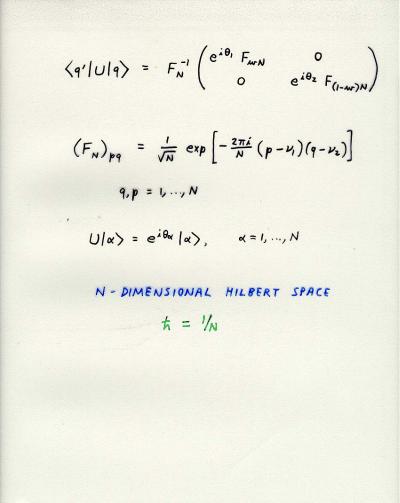 ⟨q'|U|q⟩ = F_N^{-1} ( e^{iθ_1} F_{wN} 0
0 e^{iθ_2} F_{(1-w)N} )
(F_N)_{pq} = 1/√N exp[-2πi/N (p-ν_1)(q-ν_2)]
q,p = 1,...,N
U|α⟩ = e^{iθ_α}|α⟩, α=1,...,N
N-DIMENSIONAL HILBERT SPACE
ℏ = 1/N